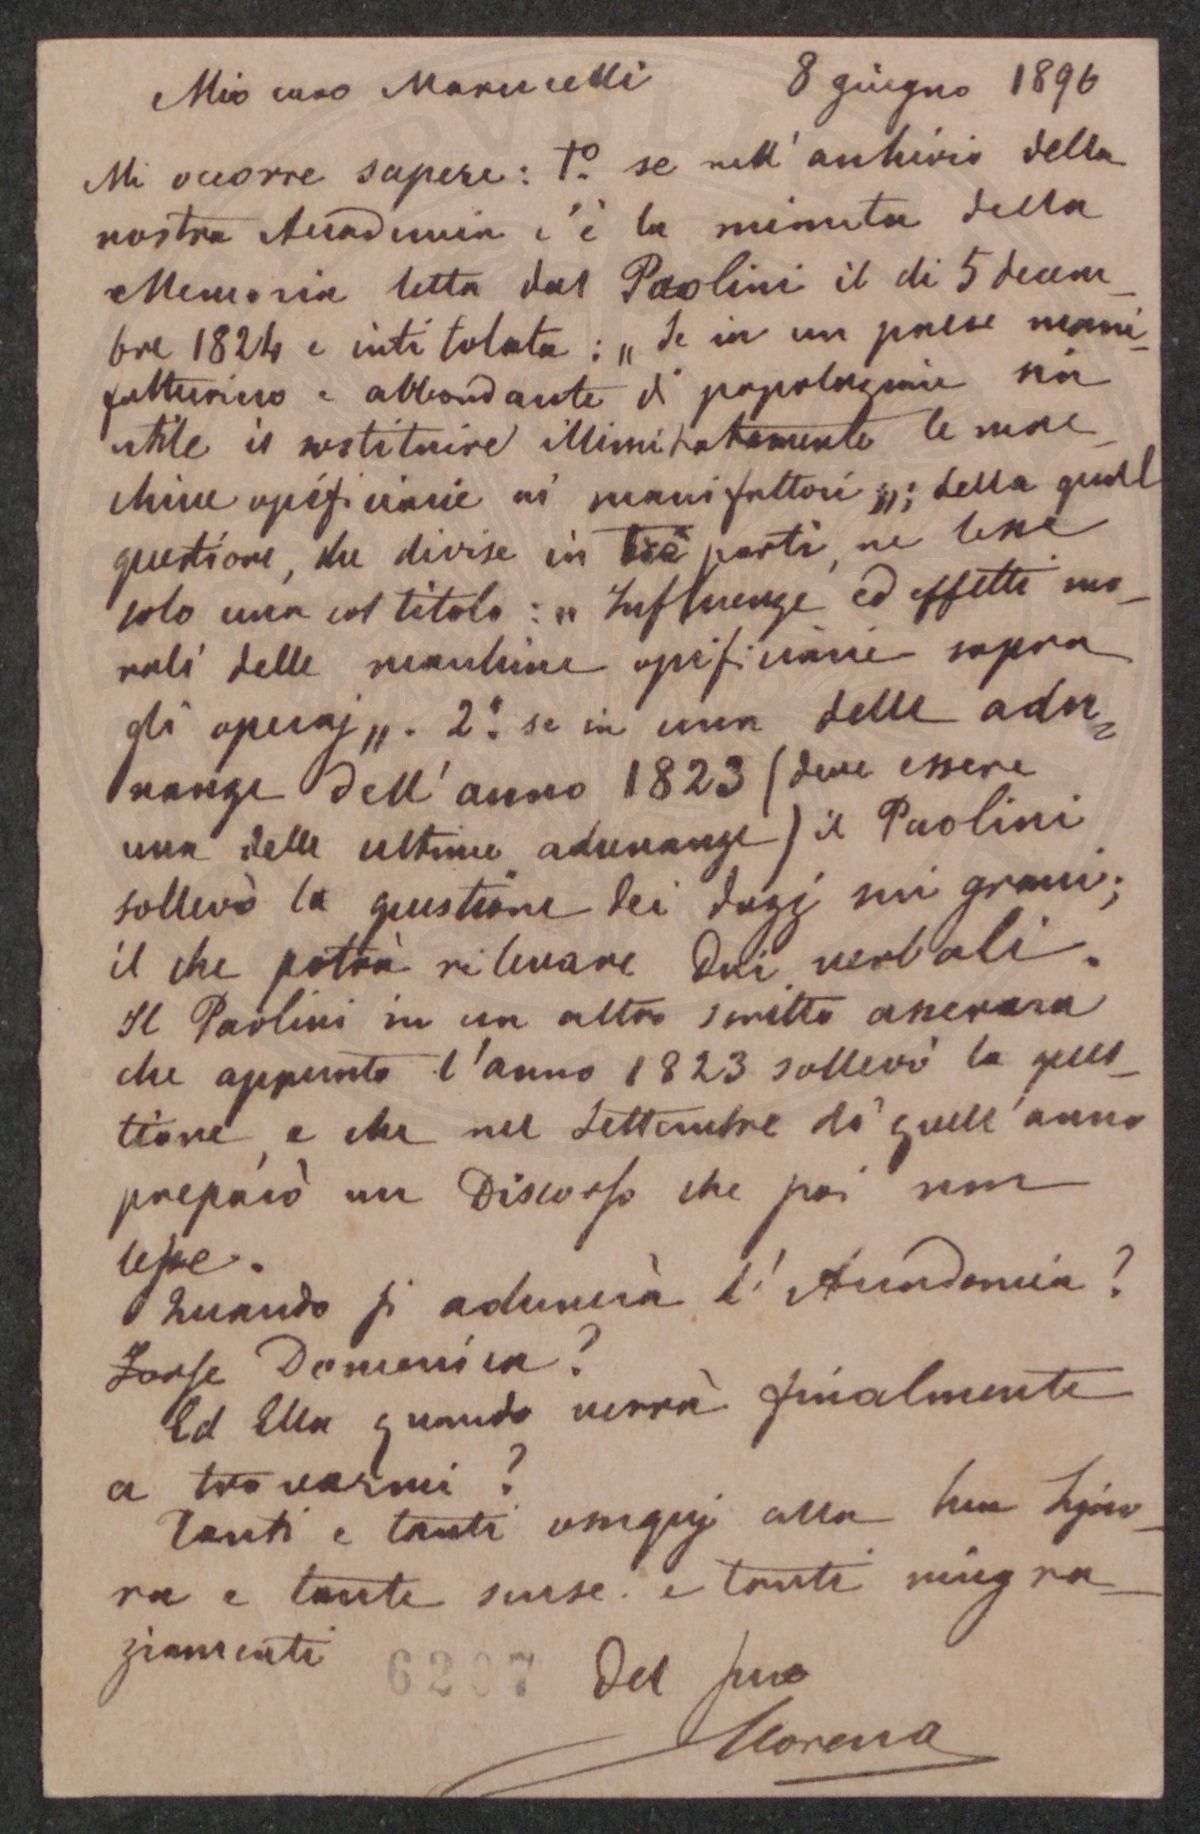 Mio caro Marucelli 8 giugno 1896
Mi occorre sapere: 1º se nell'archivio della
nostra Accademia c'è la minuta della
Memoria letta dal Paolini il dì 5 decem-
bre 1824 e intitolata: „ Se in un paese mani-
fatturino e abbondante di popolazione sia
utile il sostituire illimitatamente le mac-
chine opificiarie ai manifattori „; della qual
questione, che divise in tre parti, ne lesse
solo una col titolo: „ Influenze ed effetti mo-
rali delle macchine opificiarie sopra
gli operaj „. 2º se in una delle adu-
nanze dell'anno 1823 (deve essere
una delle ultime adunanze) il Paolini
sollevò la questione dei dazj sui grani;
il che potrà rilevare dai verbali.
Il Paolini in un altro scritto asserisce
che appunto l'anno 1823 sollevò la ques-
tione, e che nel Settembre di quell'anno
preparò un Discorso che poi non
lesse.
Quando si adunerà l'Accademia?
Forse Domenica?
Ed Ella quando verrà finalmente
a trovarmi?
Tanti e tanti ossequj alla Sua Signo-
ra e tante scuse e tanti ringra-
ziamenti
6207 Del suo
Morena